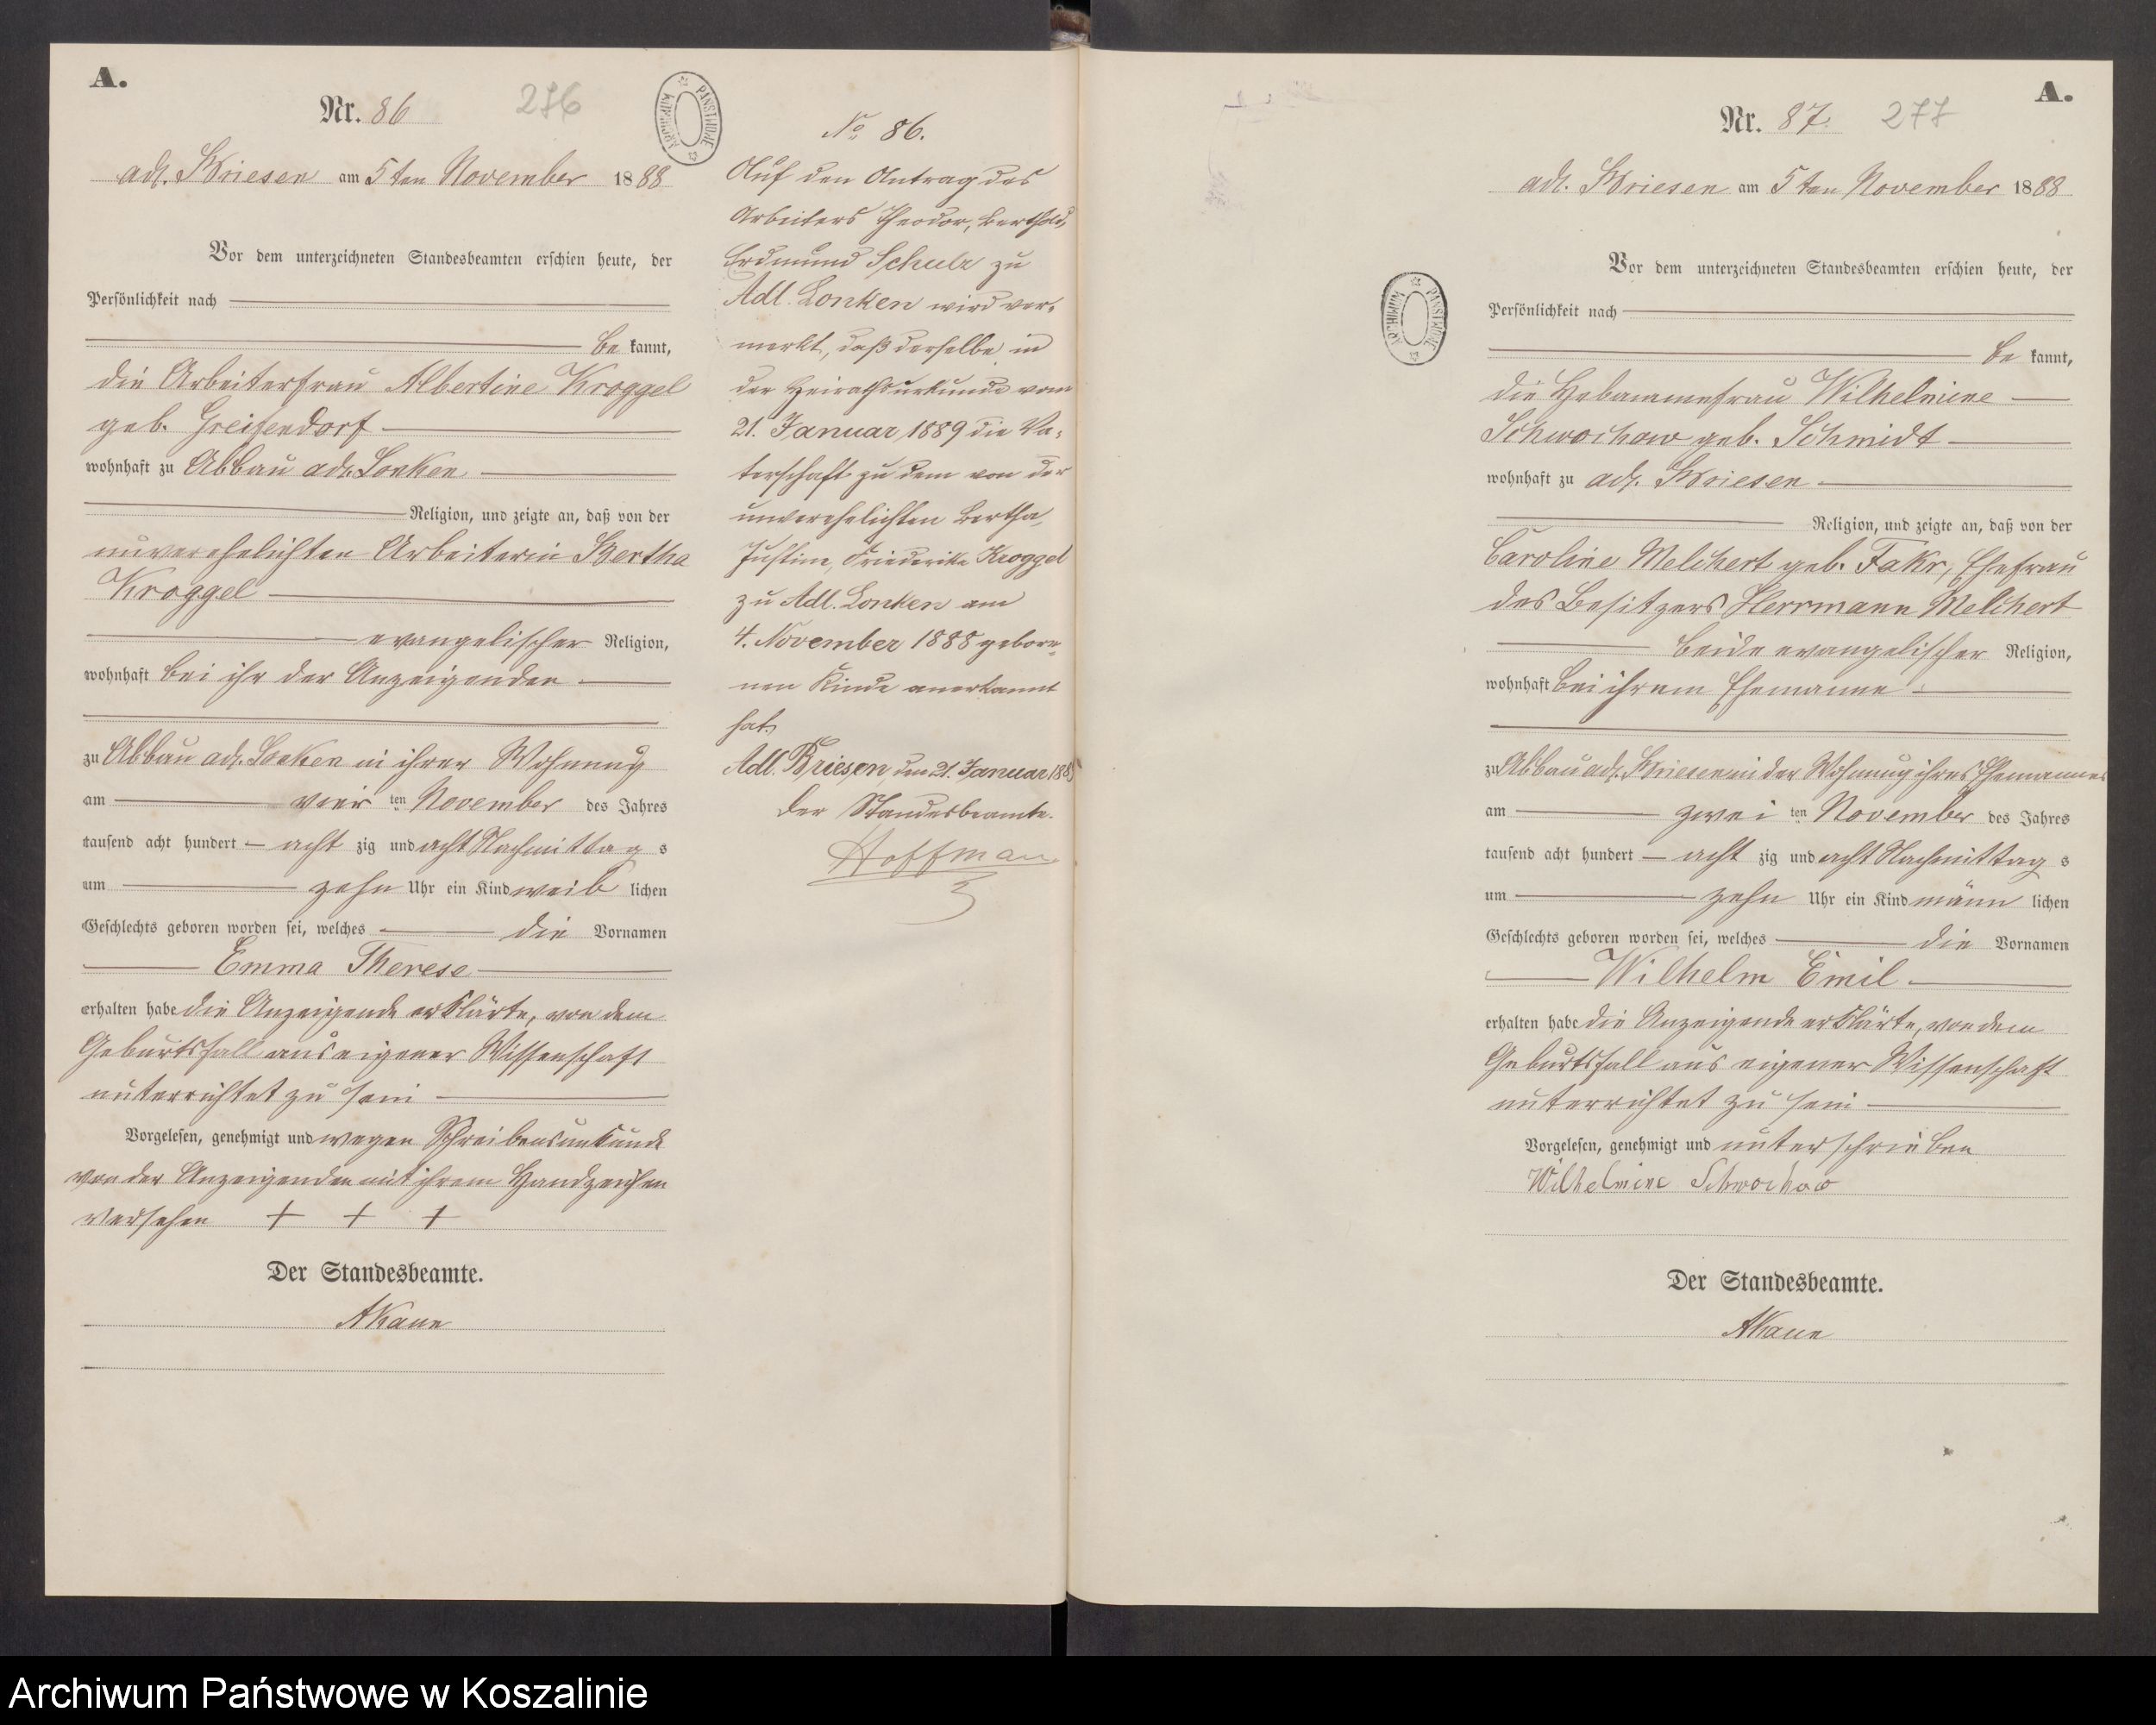 A.
Nr. 86
276
adl. Briesen am 5ten November 1888
Vor dem unterzeichneten Standesbeamten erschien heute, der
Persönlichkeit nach
be kannt,
die Arbeiterfrau Albertine Kroggel
geb. Greifendorf
wohnhaft zu Abbau adl. Lonken
Religion, und zeigte an, daß von der
unverehelichten Arbeiterin Bertha
Kroggel
evangelischer Religion,
wohnhaft bei ihr der Anzeigenden
zu Abbau adl. Lonken in ihrer Wohnung
am vier ten November des Jahres
tausend acht hundert acht zig und acht Nachmittag s
um zehn Uhr ein Kind weib lichen
Geschlechts geboren worden sei, welches die Vornamen
Emma Therese
erhalten habe die Anzeigende erklärte, von dem
Geburtsfall aus eigener Wissenschaft
unterrichtet zu sein
Vorgelesen, genehmigt und wegen Schreibensunkunde
von der Anzeigenden mit ihrem Handzeichen
versehen + + +
Der Standesbeamte.
AKaun
ARCHIWUM PAŃSTWOWE
No 86.
Auf den Antrag des
Arbeiters Theodor, Berthold,
Erdmund Schulz zu
Adl. Lonken wird ver-
merkt, daß derselbe in
der Heirathsurkunde vom
21. Januar 1889 die Va-
terschaft zu dem von der
unverehelichten Bertha,
Justine, Friederike Kroggel
zu Adl. Lonken am
4. November 1888 gebore-
nen Kinde anerkannt
hat.
Adl. Briesen, den 21. Januar 1889
Der Standesbeamte.
Hoffman
A.
Nr. 87.
277
adl. Briesen am 5ten November 1888
Vor dem unterzeichneten Standesbeamten erschien heute, der
Persönlichkeit nach
be kannt,
die Hebammefrau Wilhelmine
Schwochow geb. Schmidt
wohnhaft zu adl. Briesen
Religion, und zeigte an, daß von der
Caroline Melchert geb. Fakr, Ehefrau
des Besitzers Herrmann Melchert
beide evangelischer Religion,
wohnhaft bei ihrem Ehemanne
zu Abbau adl. Briesen in der Wohnung ihres Ehemannes
am zwei ten November des Jahres
tausend acht hundert acht zig und acht Nachmittag s
um zehn Uhr ein Kind männ lichen
Geschlechts geboren worden sei, welches die Vornamen
Wilhelm Emil
erhalten habe die Anzeigende erklärte, von dem
Geburtsfall aus eigener Wissenschaft
unterrichtet zu sein
Vorgelesen, genehmigt und unterschrieben
Wilhelmine Schwochoo
Der Standesbeamte.
AKaun
ARCHIWUM PAŃSTWOWE
Archiwum Państwowe w Koszalinie